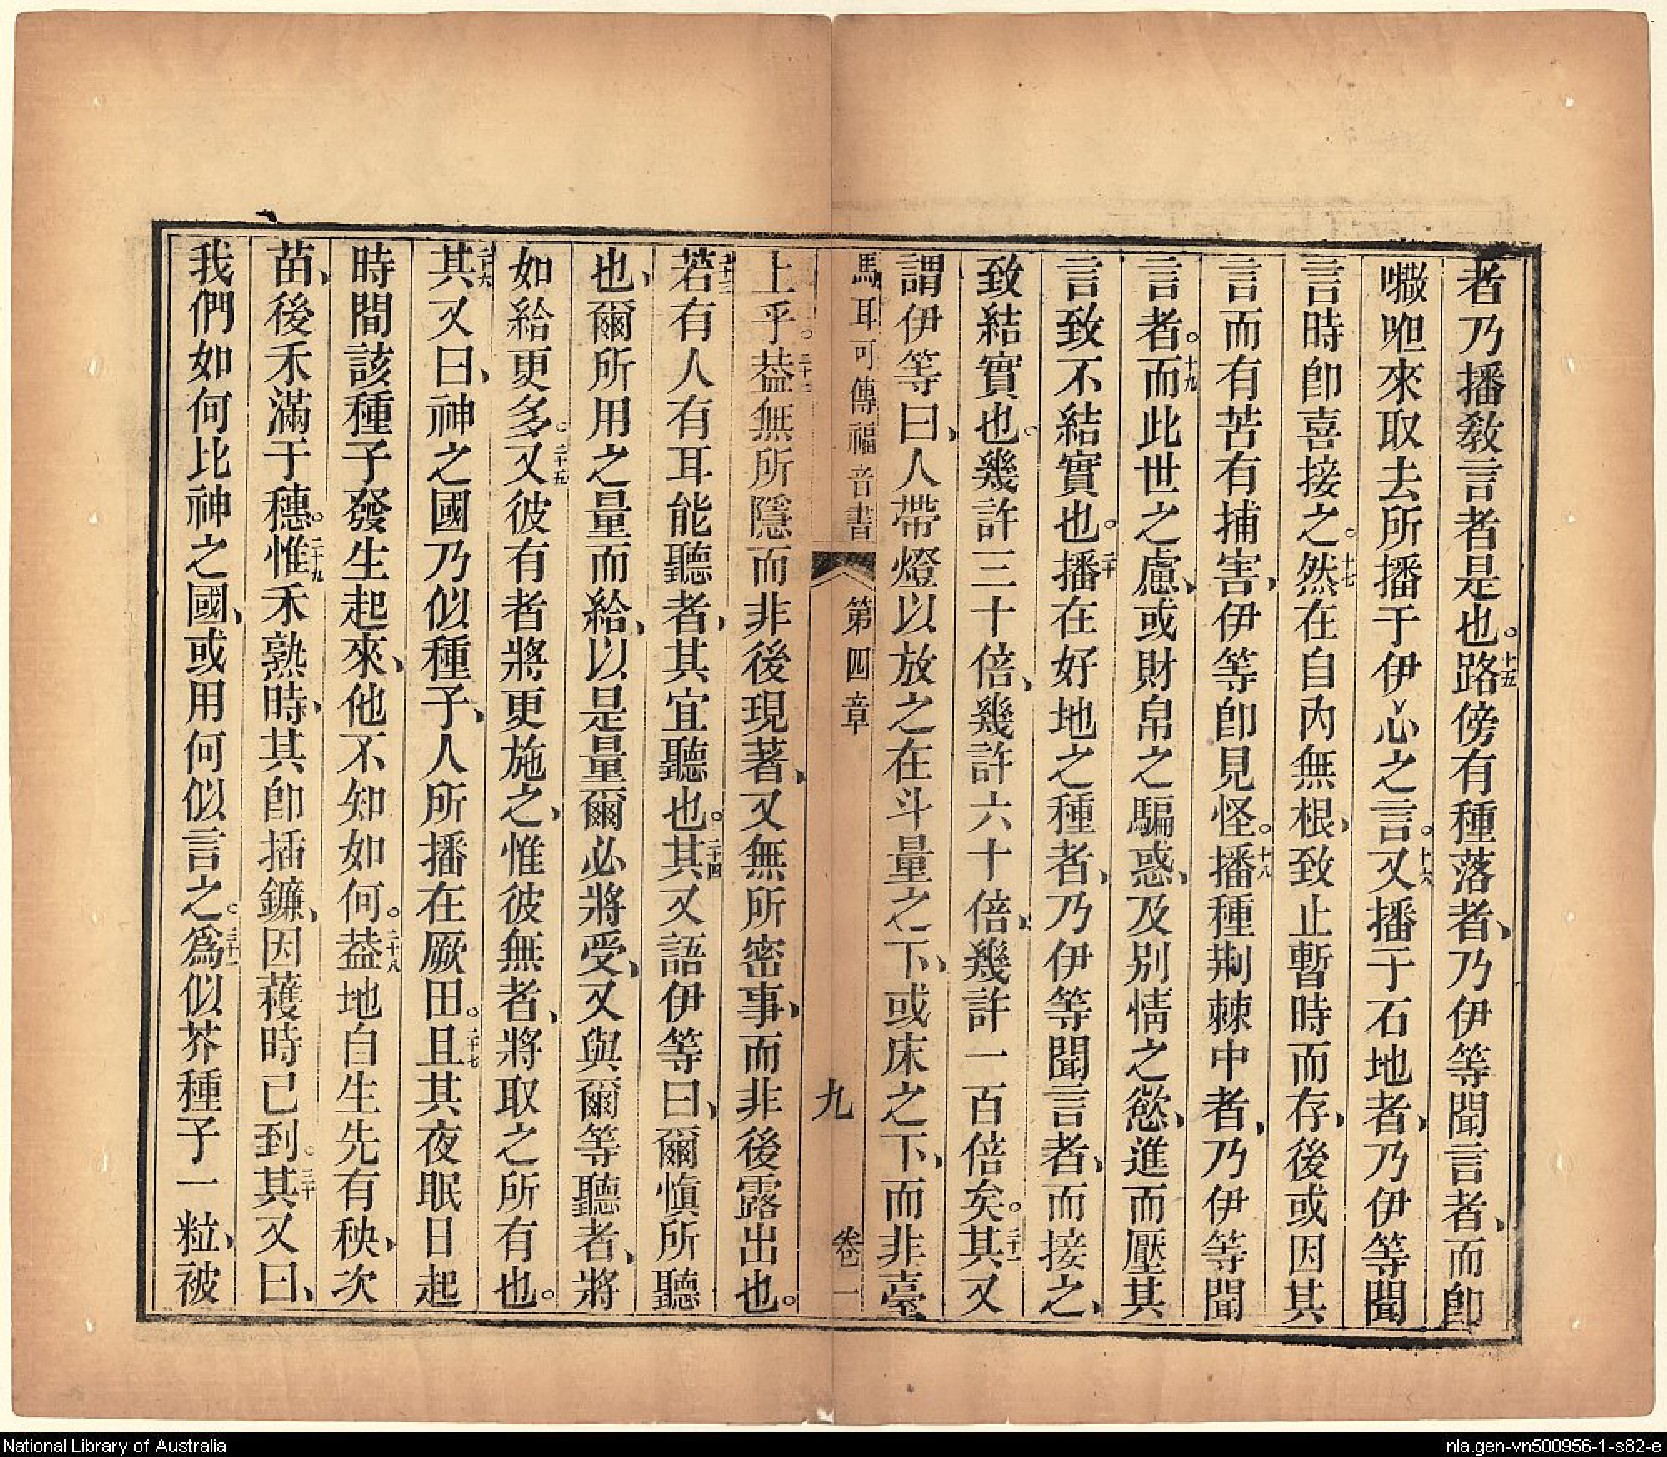 者乃播教言者是也。十五路傍有種落者、乃伊等聞言者、而卽
㘔呾來取去所播于伊心之言。十六又播于石地者、乃伊等聞
言時卽喜接之。十七然在自內無根、致止暫時而存、後或因其
言而有苦有捕害、伊等卽見怪。十八播種荆棘中者、乃伊等聞
言者。十九而此世之慮、或財帛之騙惑、及別情之慾、進而壓其
言致不結實也。二十播在好地之種者、乃伊等聞言者、而接之、
致結實也。幾許三十倍、幾許六十倍、幾許一百倍矣。二十一其又
謂伊等曰、人帶燈以放之在斗量之下、或床之下、而非臺
馬耳可傳福音書 第四章 九 卷一
上乎。二十二葢無所隱而非後現著、又無所密事、而非後露出也。
二十三若有人有耳能聽者、其宜聽也。二十四其又語伊等曰、爾愼所聽
也、爾所用之量而給、以是量爾必將受、又與爾等聽者、將
如給更多。二十五又彼有者將更施之、惟彼無者、將取之所有也。
二十六其又曰、神之國乃似種子、人所播在厥田。二十七且其夜眠日起
時間該種子發生起來、他不知如何。二十八葢地自生先有秧、次
苗、後禾滿于穗。二十九惟禾熟時、其卽插鐮、因穫時已到。三十其又曰、
我們如何比神之國、或用何似言之。三十一爲似芥種子一粒、被
National Library of Australia
nla.gen-vn500956-1-s82-e